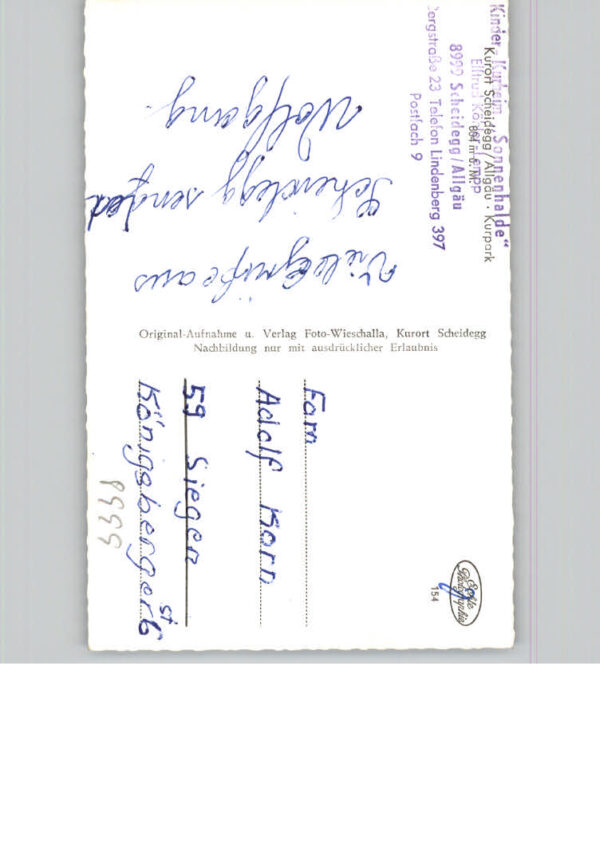 Kinder-Kurheim „Sonnenhalde“
Kurort Scheidegg/Allgäu · Kurpark
8999 Scheidegg/Allgäu
Bergstraße 23 Telefon Lindenberg 397
Postfach 9
Viele Grüße aus
Scheidegg sendet
Wolfgang.
Original-Aufnahme u. Verlag Foto-Wieschalla, Kurort Scheidegg
Nachbildung nur mit ausdrücklicher Erlaubnis
Echte
Photographie
154
Fam
Adolf Korn
59 Siegen
Königsberger st 6